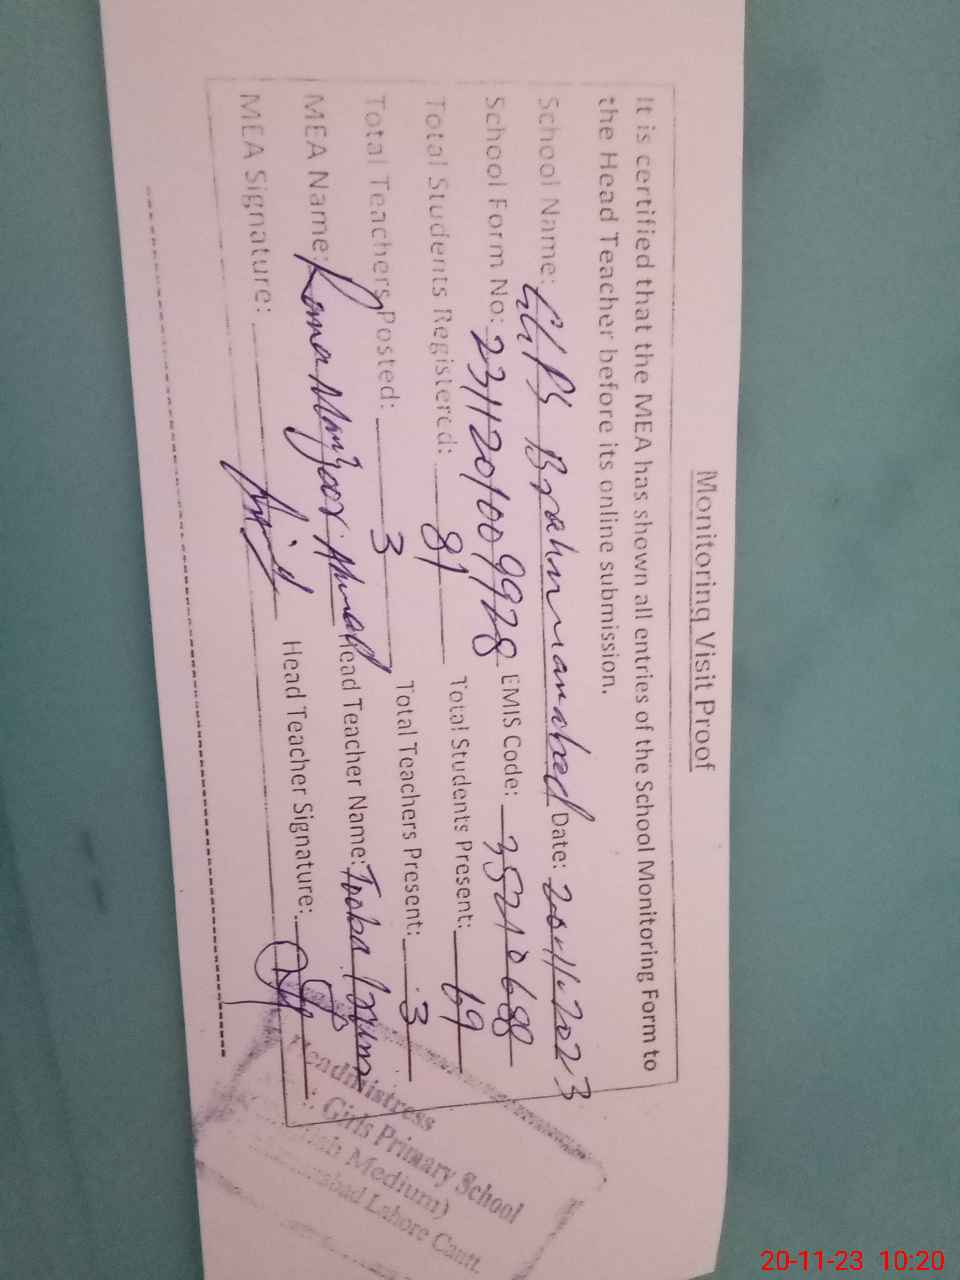 Monitoring Visit Proof
It is certified that the MEA has shown all entries of the School Monitoring Form to
the Head Teacher before its online submission.
School Name: Brahmmanabad Date: 20.11.2023
School Form No: 2311201009928 EMIS Code: 35210688
Total Students Registered: 81 Total Students Present: 69
Total Teachers Posted: 3 Total Teachers Present: 3
MEA Name: Manzoor Ahmad Head Teacher Name: Tooba
MEA Signature: Head Teacher Signature:
Headmistress
Girls Primary School
Medium)
Lahore Cantt.
20-11-23 10:20